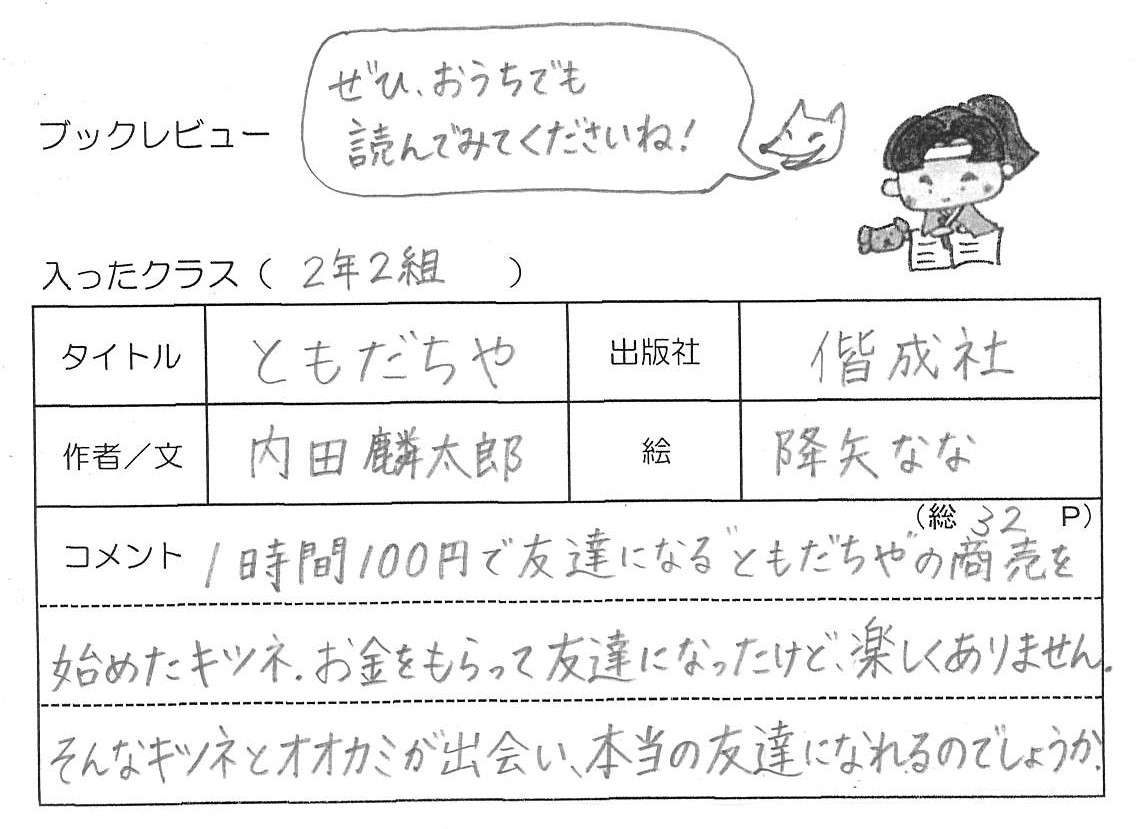 ぜひ、おうちでも
読んでみてくださいね!
ブックレビュー
入ったクラス( 2年2組 )
タイトル ともだちや 出版社 偕成社
作者/文 内田麟太郎 絵 降矢なな
(総 32 P)
コメント 1時間100円で友達になる"ともだちや"の商売を
始めたキツネ.お金をもらって友達になったけど、楽しくありません.
そんなキツネとオオカミが出会い、本当の友達になれるのでしょうか.